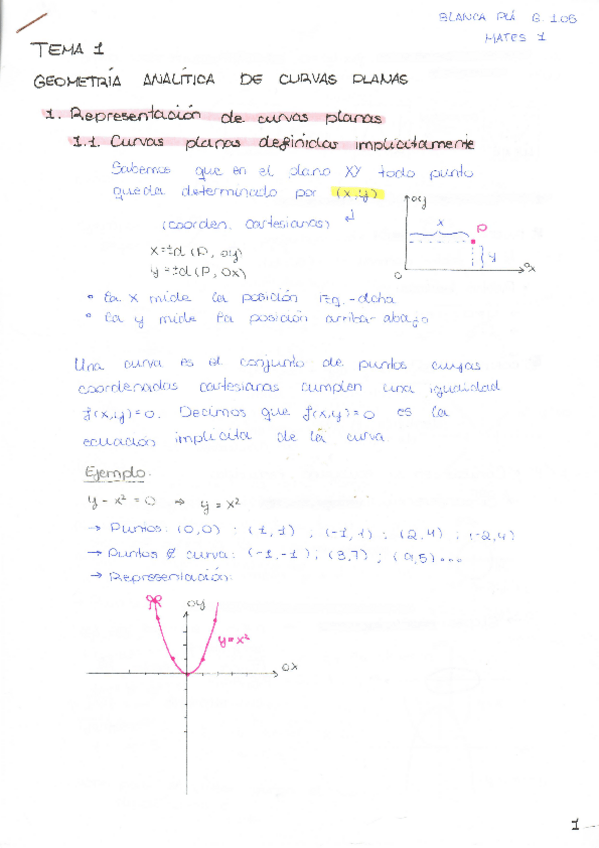 BLANCA PLÁ G. 106
MATES 1
TEMA 1
GEOMETRÍA ANALÍTICA DE CURVAS PLANAS
1. Representación de curvas planas
1.1. Curvas planas definidas implícitamente
Sabemos que en el plano XY todo punto
queda determinado por (x,y)
(coorden. cartesianas)
x=±d (P, oy)
y=±d (P, Ox)
oy
x
P
y
O
ox
• la x mide la posición izq.-dcha
• la y mide la posición arriba-abajo
Una curva es el conjunto de puntos cuyas
coordenadas cartesianas cumplen una igualdad
f(x,y)=0. Decimos que f(x,y)=0 es la
ecuación implícita de la curva.
Ejemplo:
y - x² = 0 ⇒ y = x²
→ Puntos: (0,0) ; (1,1) ; (-1,1) ; (2,4) ; (-2,4)
→ Puntos ∉ curva: (-1,-1) ; (3,7) ; (9,5)...
→ Representación:
oy
y=x²
ox
1